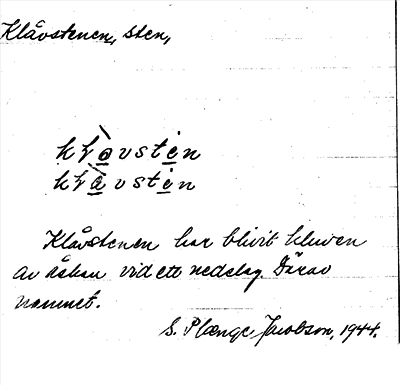 Klåvstenen, sten,
kḷò̲vsté̲n
kḷà̲vsté̲n
Klåvstenen har blivit kluven
av åskan vid ett nedslag. Därav
namnet.
S. Plænge Jacobson, 1944.